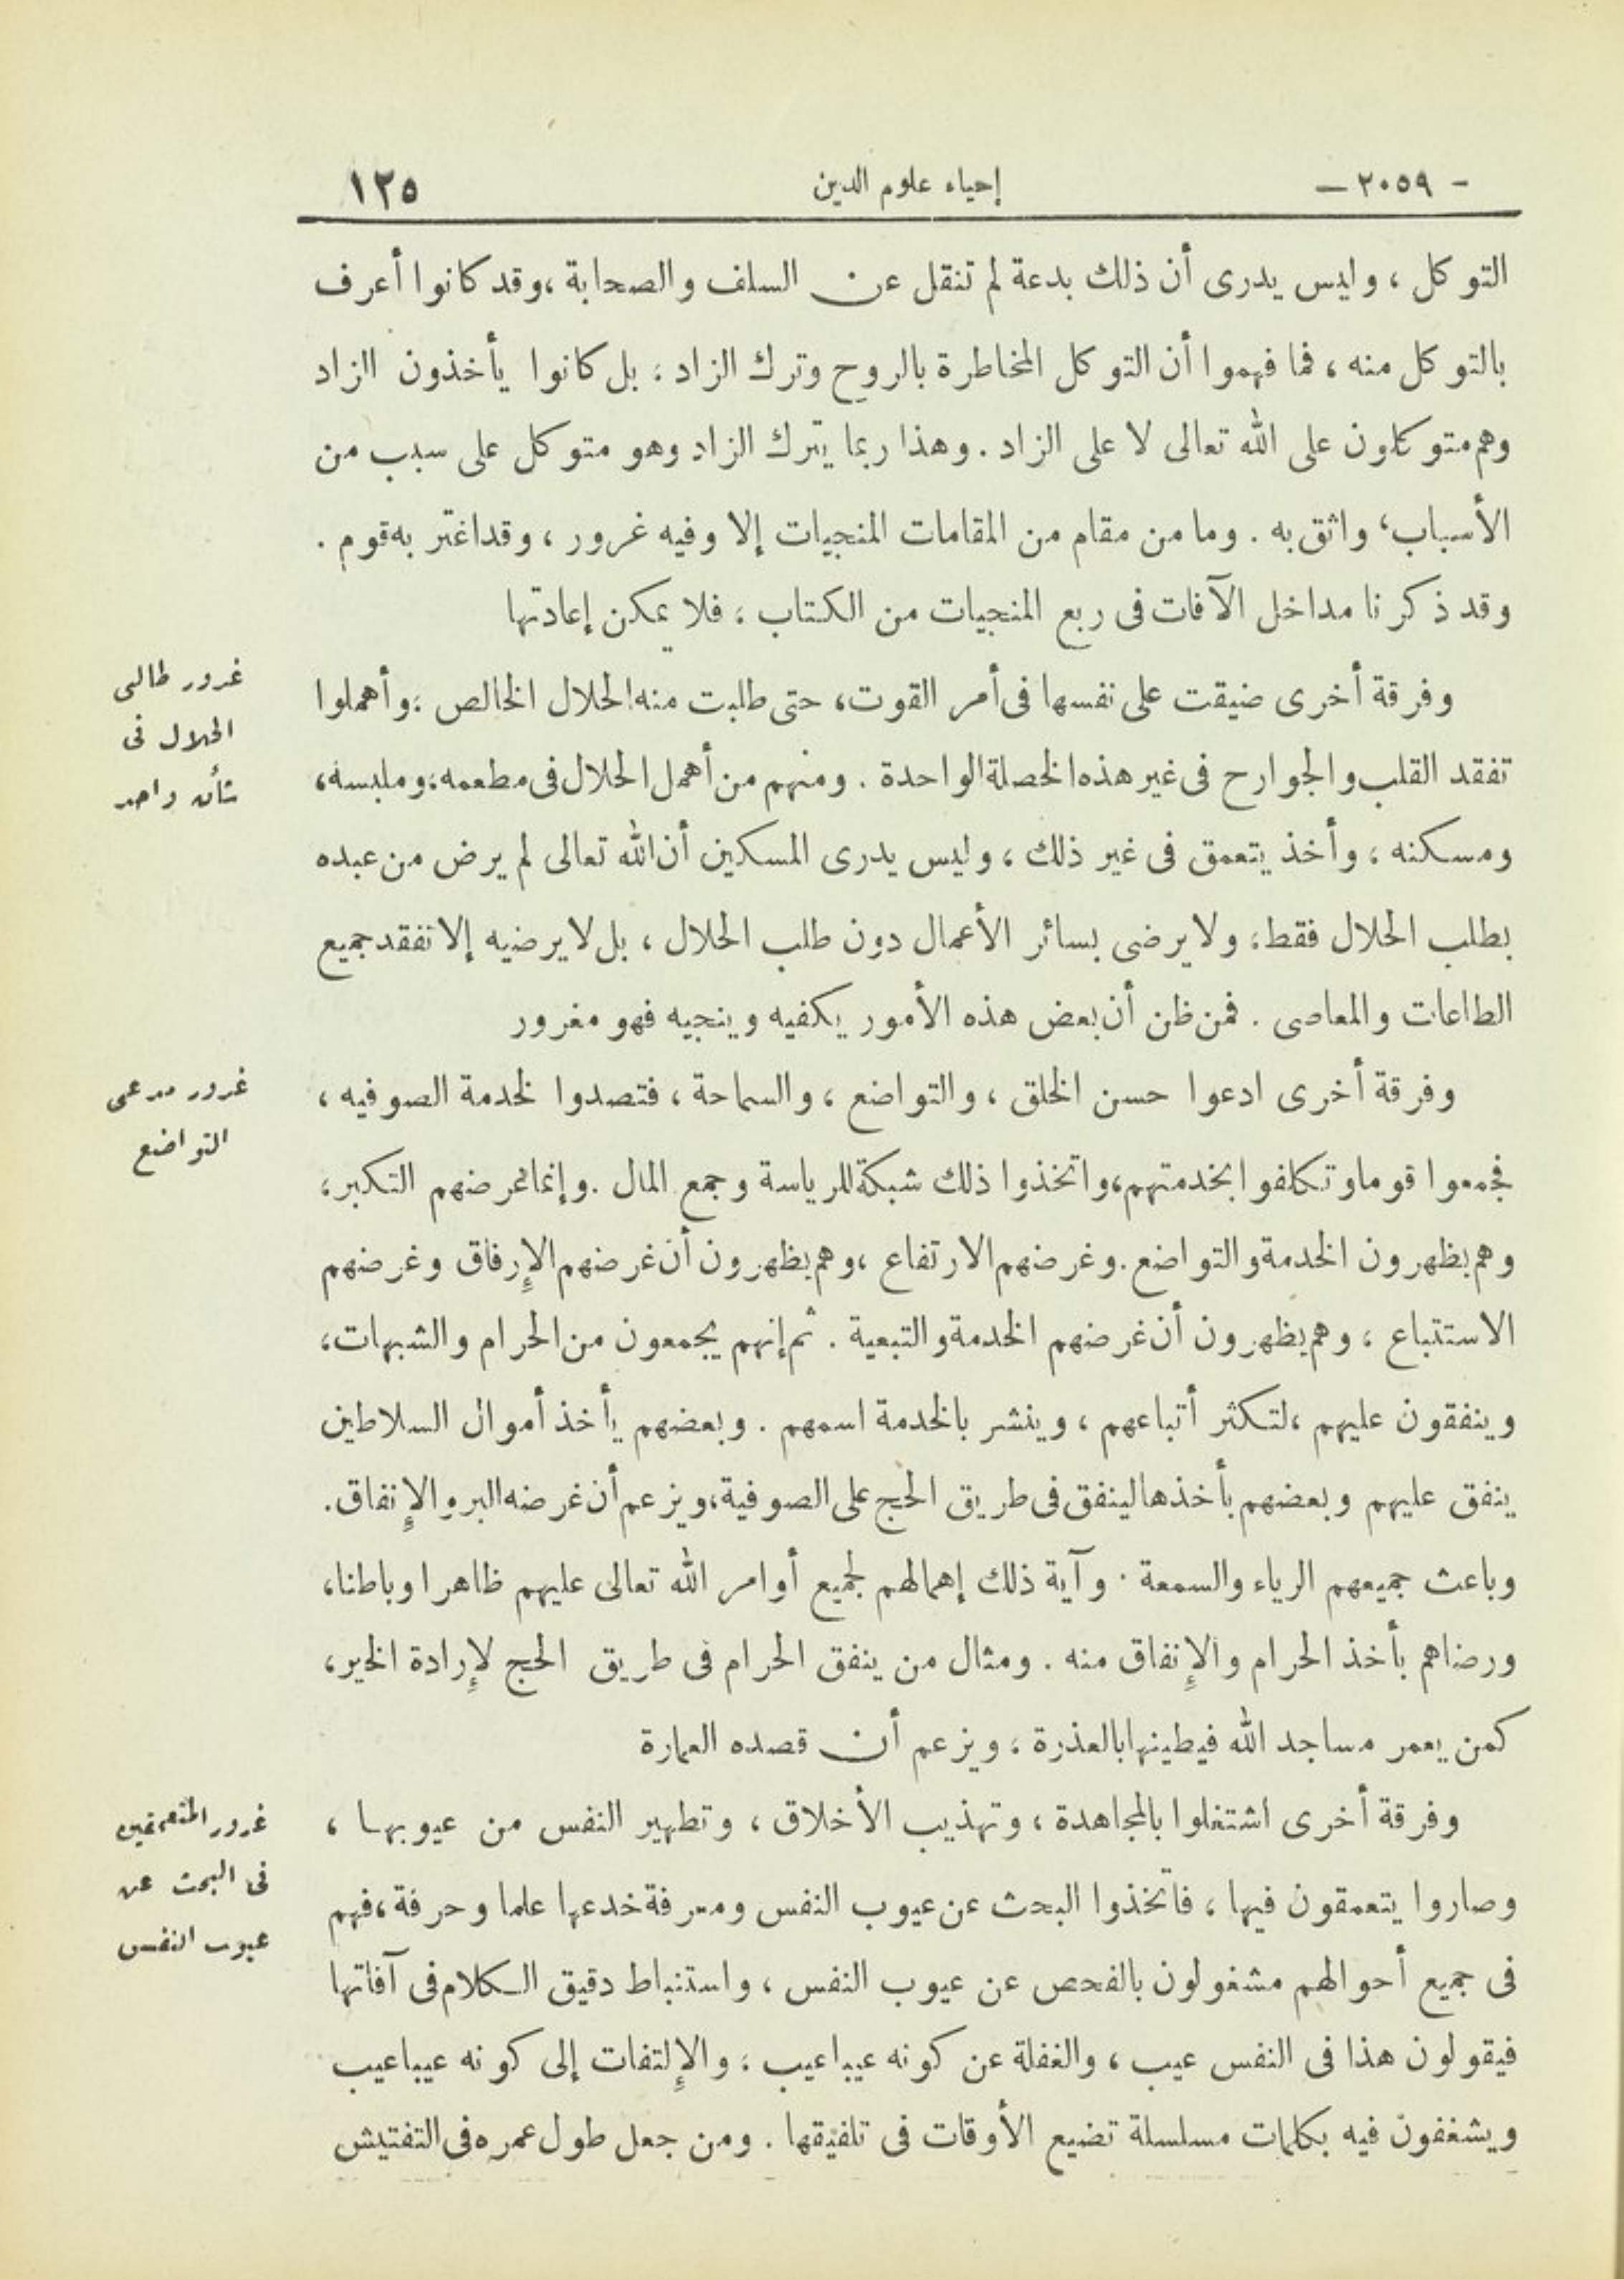 - ٢٠٥٩ —
إحياء علوم الدين
١٢٥
التوكل ، وليس يدرى أن ذلك بدعة لم تنقل عن السلف والصحابة ، وقد كانوا أعرف
بالتوكل منه ، فما فهموا أن التوكل المخاطرة بالروح وترك الزاد ، بل كانوا يأخذون الزاد
وهم متوكلون على الله تعالى لا على الزاد . وهذا ربما يترك الزاد وهو متوكل على سبب من
الأسباب ، واثق به . وما من مقام من المقامات المنجيات إلا وفيه غرور ، وقد اغتر به قوم .
وقد ذكرنا مداخل الآفات فى ربع المنجيات من الكتاب ، فلا يمكن إعادتها
غرور طالبى
الحلال فى
شأن واحد
وفرقة أخرى ضيقت على نفسها فى أمر القوت ، حتى طلبت منه الحلال الخالص ، وأهملوا
تفقد القلب والجوارح فى غير هذه الخصلة الواحدة . ومنهم من أهمل الحلال فى مطعمه ، وملبسه ،
ومسكنه ، وأخذ يتعمق فى غير ذلك ، وليس يدرى المسكين أن الله تعالى لم يرض من عبده
بطلب الحلال فقط ، ولا يرضى بسائر الأعمال دون طلب الحلال ، بل لا يرضيه إلا تفقد جميع
الطاعات والمعاصى . فمن ظن أن بعض هذه الأمور يكفيه وينجيه فهو مغرور
غرور مدعى
التواضع
وفرقة أخرى ادعوا حسن الخلق ، والتواضع ، والسماحة ، فتصدوا لخدمة الصوفيه ،
فجمعوا قوما وتكلفوا بخدمتهم ، واتخذوا ذلك شبكة للرياسة وجمع المال . وإنما غرضهم التكبر ،
وهم يظهرون الخدمة والتواضع . وغرضهم الارتفاع ، وهم يظهرون أن غرضهم الإرفاق وغرضهم
الاستتباع ، وهم يظهرون أن غرضهم الخدمة والتبعية . ثم إنهم يجمعون من الحرام والشبهات ،
وينفقون عليهم ، لتكثر أتباعهم ، وينشر بالخدمة اسمهم . وبعضهم يأخذ أموال السلاطين
ينفق عليهم وبعضهم يأخذها لينفق فى طريق الحج على الصوفية ، ويزعم أن غرضه البر والإنفاق .
وباعث جميعهم الرياء والسمعة . وآية ذلك إهمالهم لجميع أوامر الله تعالى عليهم ظاهرا وباطنا ،
ورضاهم بأخذ الحرام والإنفاق منه . ومثال من ينفق الحرام فى طريق الحج لإرادة الخير ،
كمن يعمر مساجد الله فيطينها بالعذرة ، ويزعم أن قصده العمارة
غرور المتعمقين
فى البحث عن
عيوب النفس
وفرقة أخرى اشتغلوا بالمجاهدة ، وتهذيب الأخلاق ، وتطهير النفس من عيوبها ،
وصاروا يتعمقون فيها ، فاتخذوا البحث عن عيوب النفس ومعرفة خدعها علما وحرفة ، فهم
فى جميع أحوالهم مشغولون بالفحص عن عيوب النفس ، واستنباط دقيق الكلام فى آفاتها
فيقولون هذا فى النفس عيب ، والغفلة عن كونه عيبا عيب ، والإلتفات إلى كونه عيبا عيب
ويشغفون فيه بكلمات مسلسلة تضيع الأوقات فى تلفيقها . ومن جعل طول عمره فى التفتيش